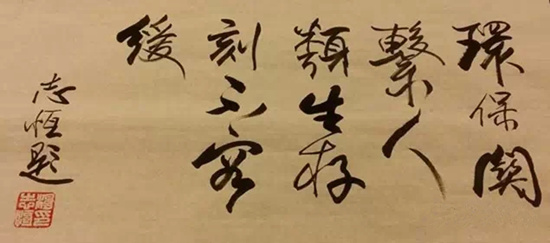 環保關
繫人
類生存
刻不容
緩
志恆題